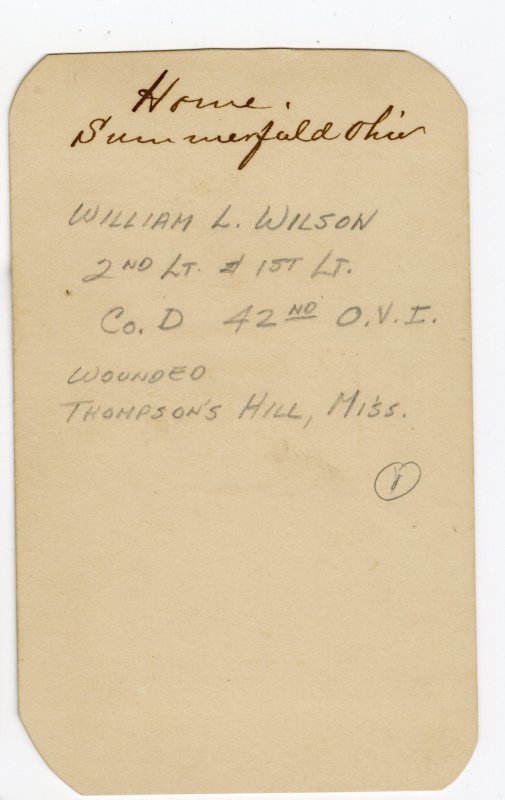 Home.
Summerfield Ohio
WILLIAM L. WILSON
2ND LT. & 1ST LT.
CO. D 42ND O.V.I.
WOUNDED
THOMPSON'S HILL, MISS.